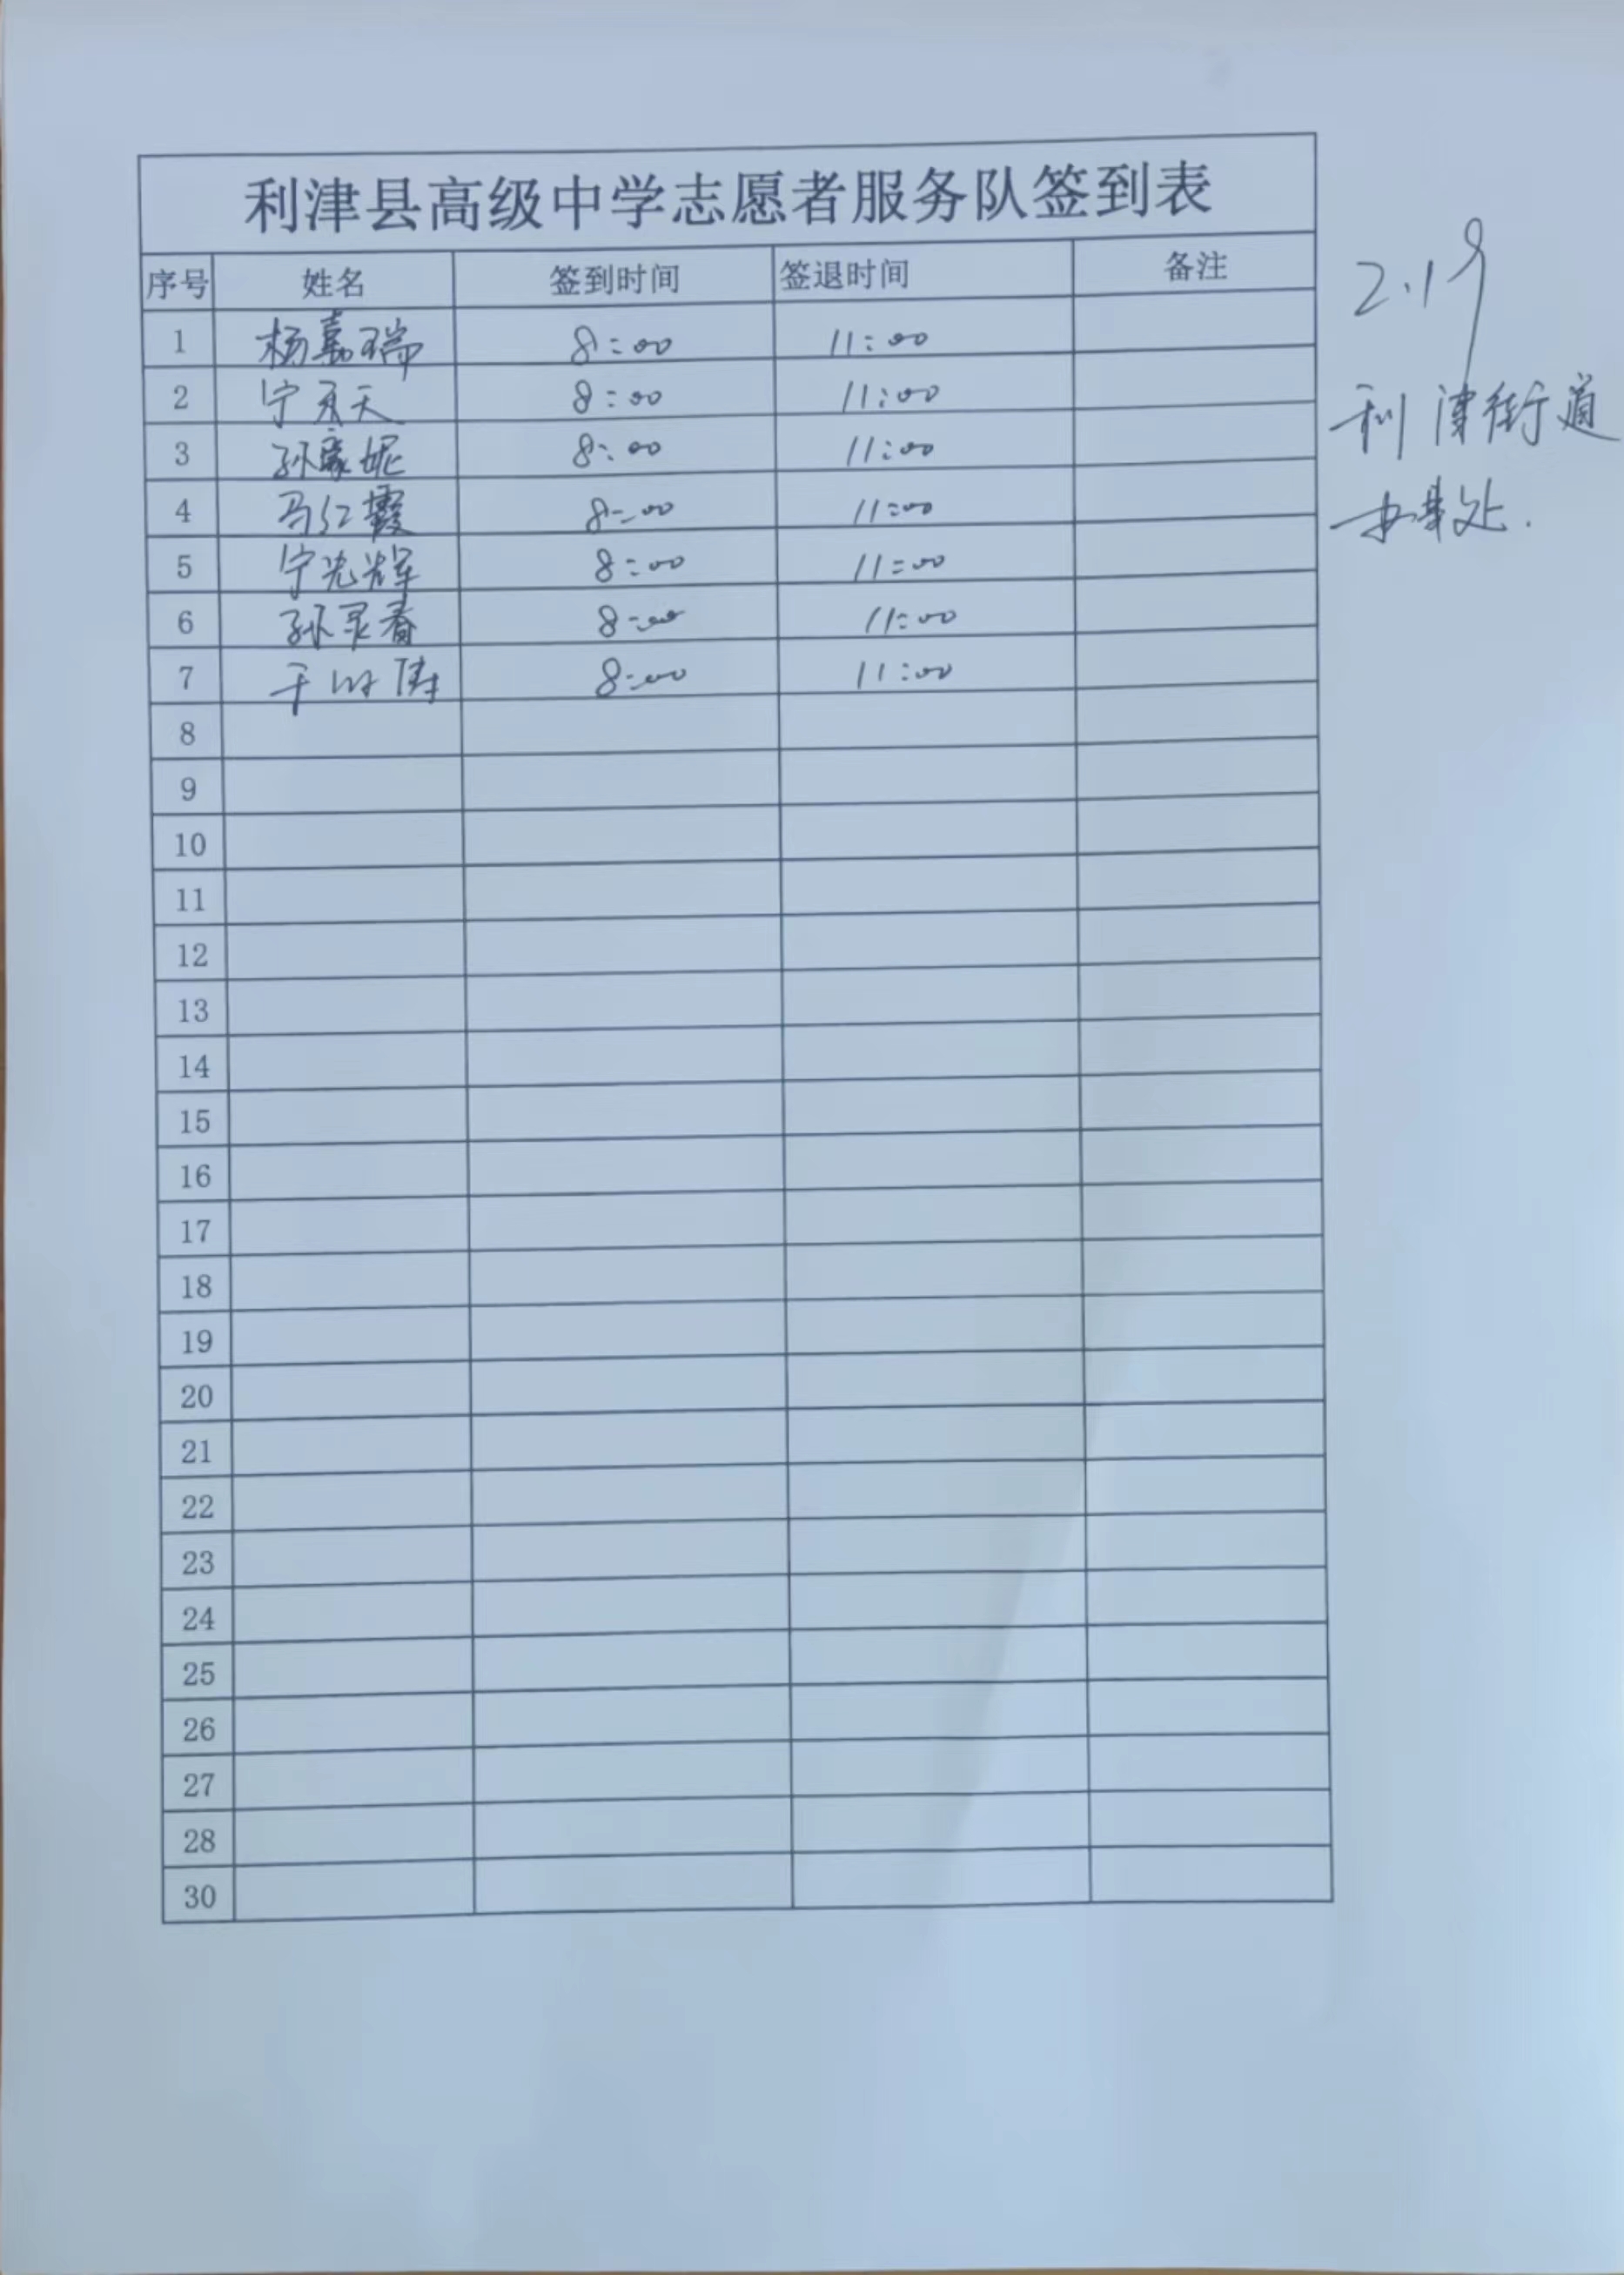 利津县高级中学志愿者服务队签到表
序号 姓名 签到时间 签退时间 备注
1 杨嘉瑞 8:00 11:00
2 宁天 8:00 11:00
3 孙家妮 8:00 11:00
4 马红霞 8:00 11:00
5 宁光辉 8:00 11:00
6 孙灵春 8:00 11:00
7 8:00 11:00
8
9
10
11
12
13
14
15
16
17
18
19
20
21
22
23
24
25
26
27
28
30
2.19
利津街道
办事处.